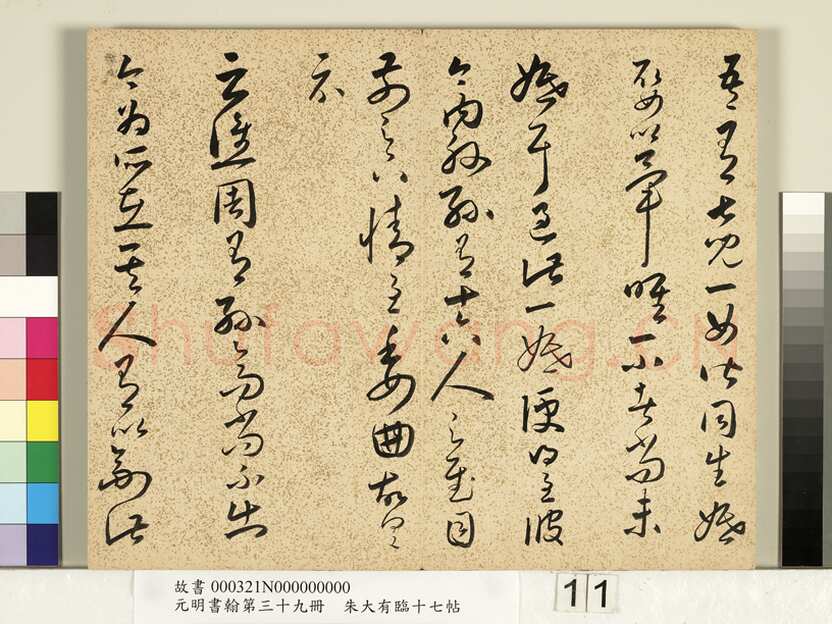 吾有七兒一女皆同生婚
娶以畢唯一小者尚未
婚耳過此一婚便得至彼
今內外孫有十六人足慰目
前足下情至委曲故具
示
云譙周有孫高尚不出
今為所在其人有以副此
Shufawang.CN
故書 000321N000000000
元明書翰第三十九冊　朱大有臨十七帖
11